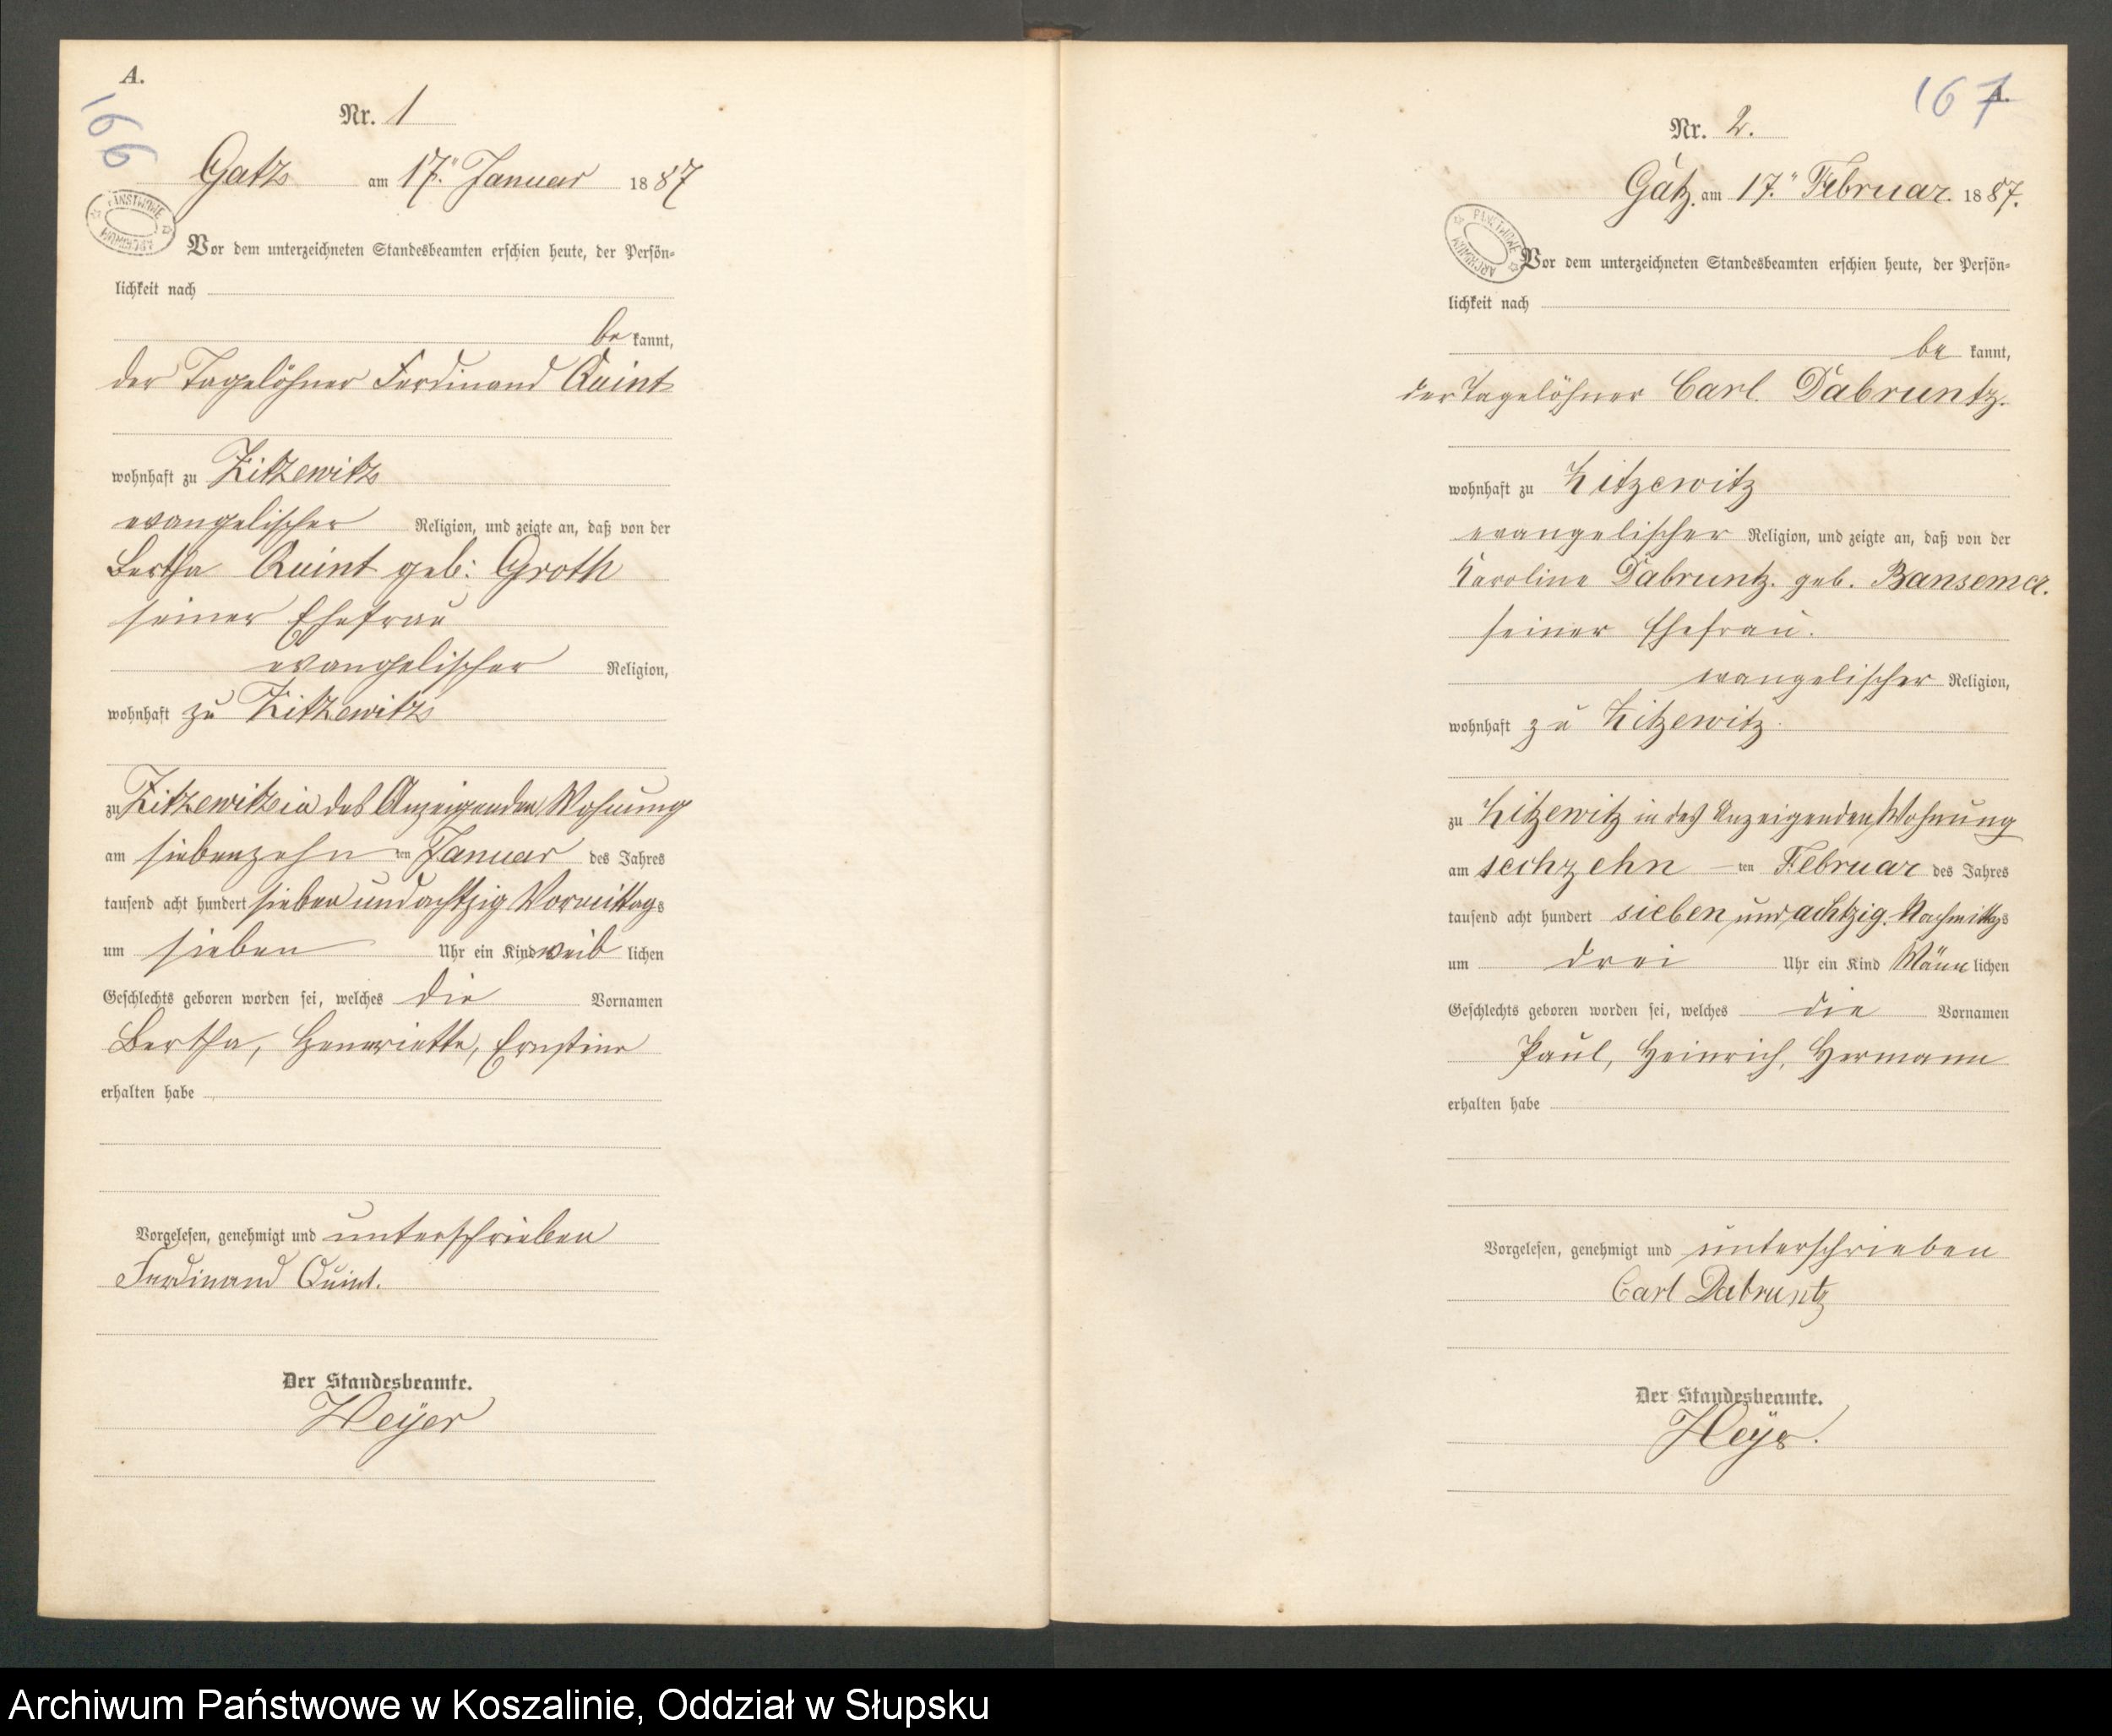 A.
166
Nr. 1
Gatz am 17." Januar 1887
PAŃSTWOWE ARCHIWUM
Vor dem unterzeichneten Standesbeamten erschien heute, der Persön-
lichkeit nach
be kannt,
der Tagelöhner Ferdinand Quint
wohnhaft zu Zitzewitz
evangelischer Religion, und zeigte an, daß von der
Bertha Quint geb: Groth
seiner Ehefrau
evangelischer Religion,
wohnhaft zu Zitzewitz
zu Zitzewitz in des Anzeigenden Wohnung
am siebenzehn ten Januar des Jahres
tausend acht hundert sieben und achtzig Vormittags
um sieben Uhr ein Kind weib lichen
Geschlechts geboren worden sei, welches die Vornamen
Bertha, Henriette, Ernstine
erhalten habe
Vorgelesen, genehmigt und unterschrieben
Ferdinand Quint.
Der Standesbeamte.
Heÿer
167
A.
Nr. 2.
Gatz. am 17." Februar. 1887.
PAŃSTWOWE ARCHIWUM
Vor dem unterzeichneten Standesbeamten erschien heute, der Persön-
lichkeit nach
be kannt,
der Tagelöhner Carl. Dabruntz.
wohnhaft zu Zitzewitz
evangelischer Religion, und zeigte an, daß von der
Karoline Dabruntz. geb. Bansemer.
seiner Ehefrau.
evangelischer Religion,
wohnhaft zu Zitzewitz.
zu Zitzewitz in des Anzeigenden Wohnung
am sechzehn ten Februar des Jahres
tausend acht hundert sieben und achtzig. Nachmittags
um drei Uhr ein Kind Männ lichen
Geschlechts geboren worden sei, welches die Vornamen
Paul, Heinrich, Hermann
erhalten habe
Vorgelesen, genehmigt und unterschrieben
Carl Dabruntz
Der Standesbeamte.
Heÿer.
Archiwum Państwowe w Koszalinie, Oddział w Słupsku